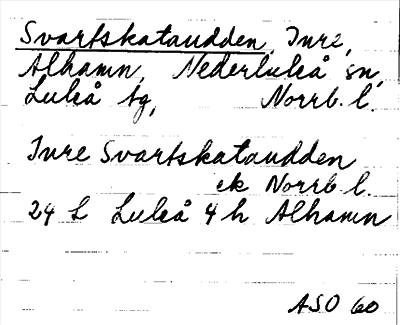 Svartskataudden, Inre,
Alhamn, Nederluleå sn,
Luleå tg, Norrb. l.
Inre Svartskataudden
ek Norrb l.
24 L Luleå 4 h Alhamn
ASO 60